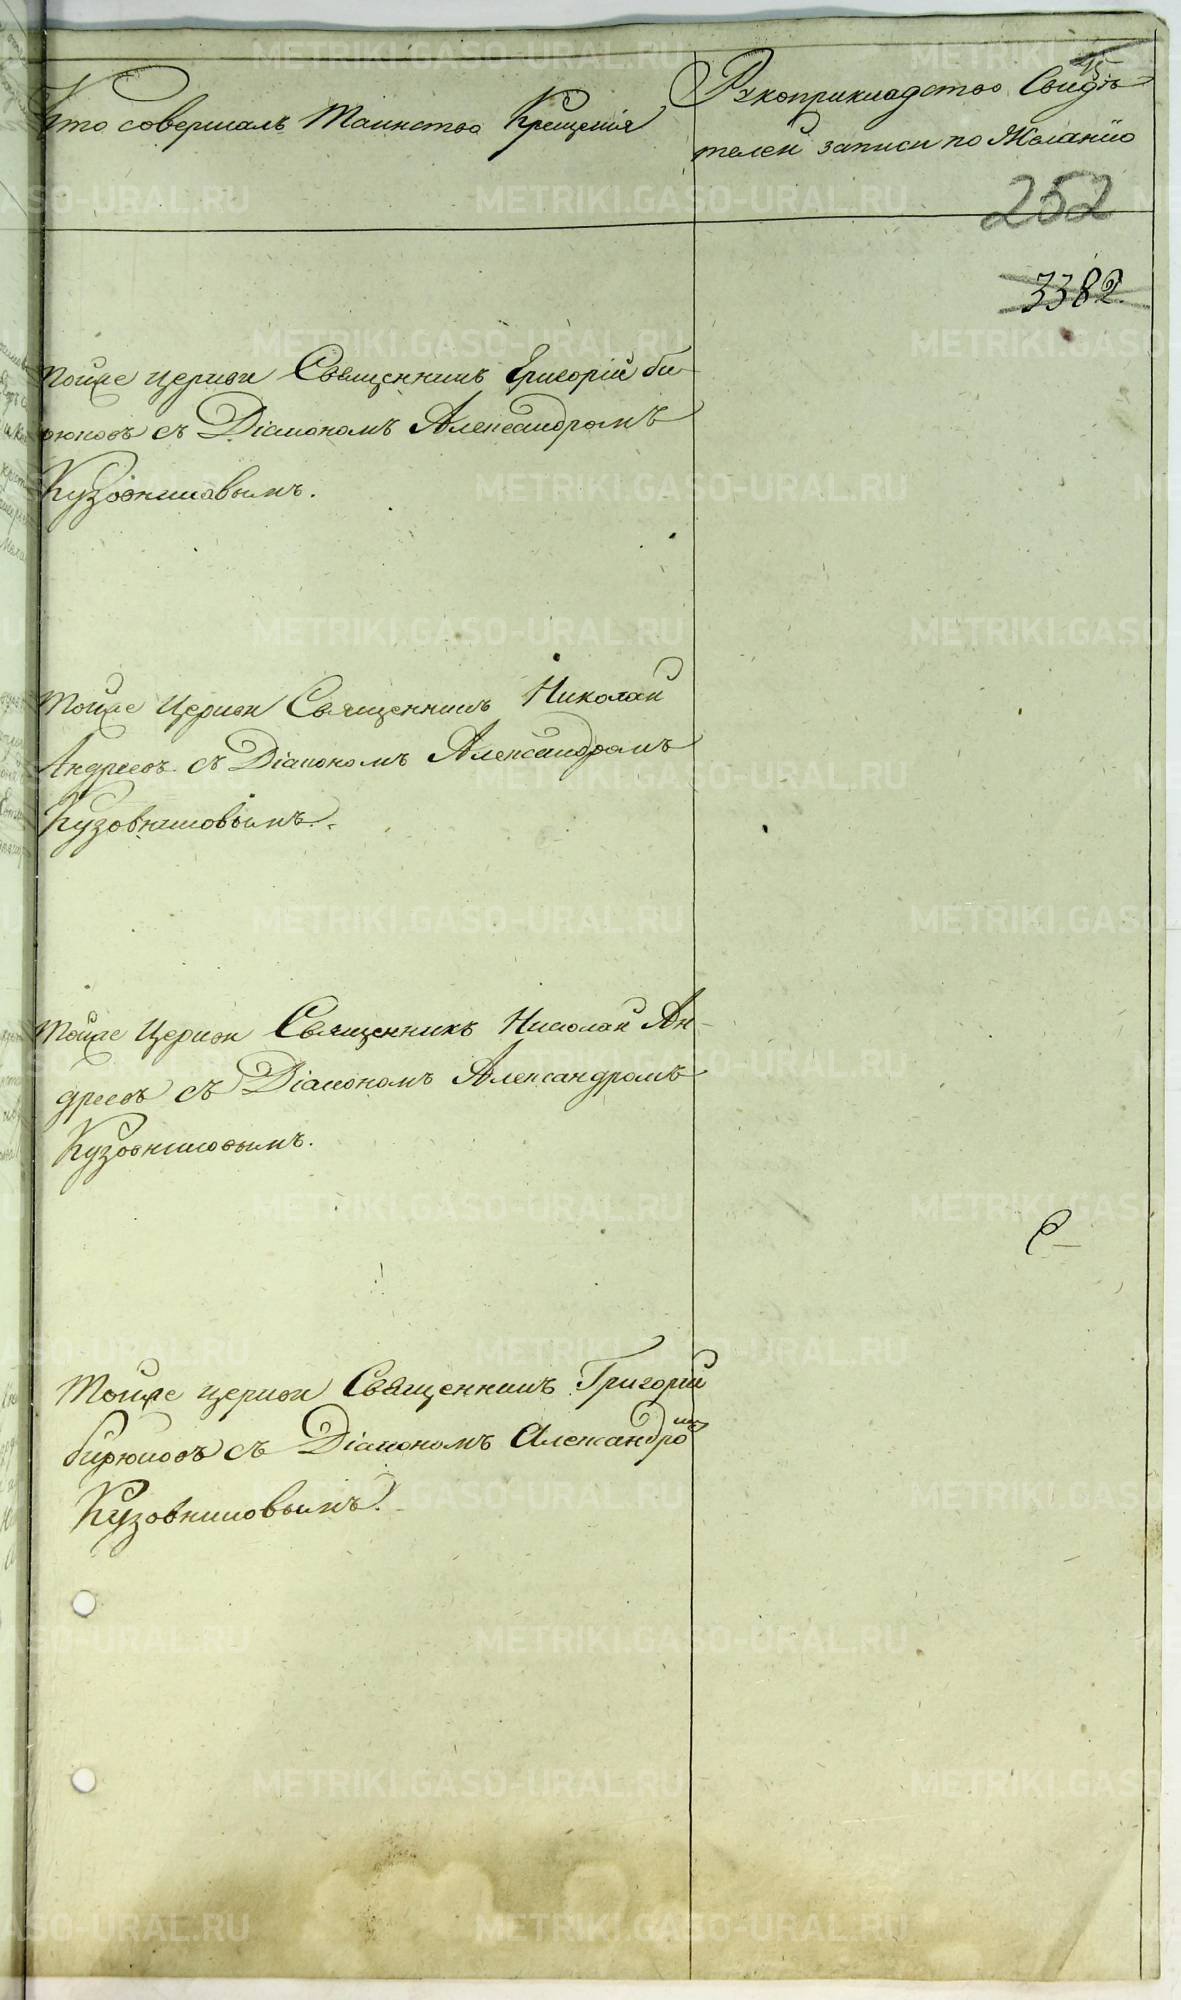 Кто совершалъ Таинство Крещенія
Рукоприкладство Свидѣ-
телей записи по Желанію
252
3382.
Тойже церкви Священникъ Григорій Би-
рюковъ съ Діакономъ Александромъ
Кузовниковымъ.
Тойже Церкви Священникъ Николай
Андреевъ съ Діакономъ Александромъ
Кузовниковымъ.
Тойже Церкви Священникъ Николай Ан-
дреевъ съ Діакономъ Александромъ
Кузовниковымъ.
Тойже церкви Священникъ Григорій
Бирюковъ съ Діакономъ Александромъ
Кузовниковымъ.
METRIKI.GASO-URAL.RU